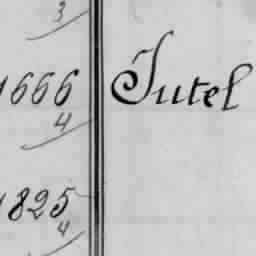 3
1666 Jutel
4
1825
4